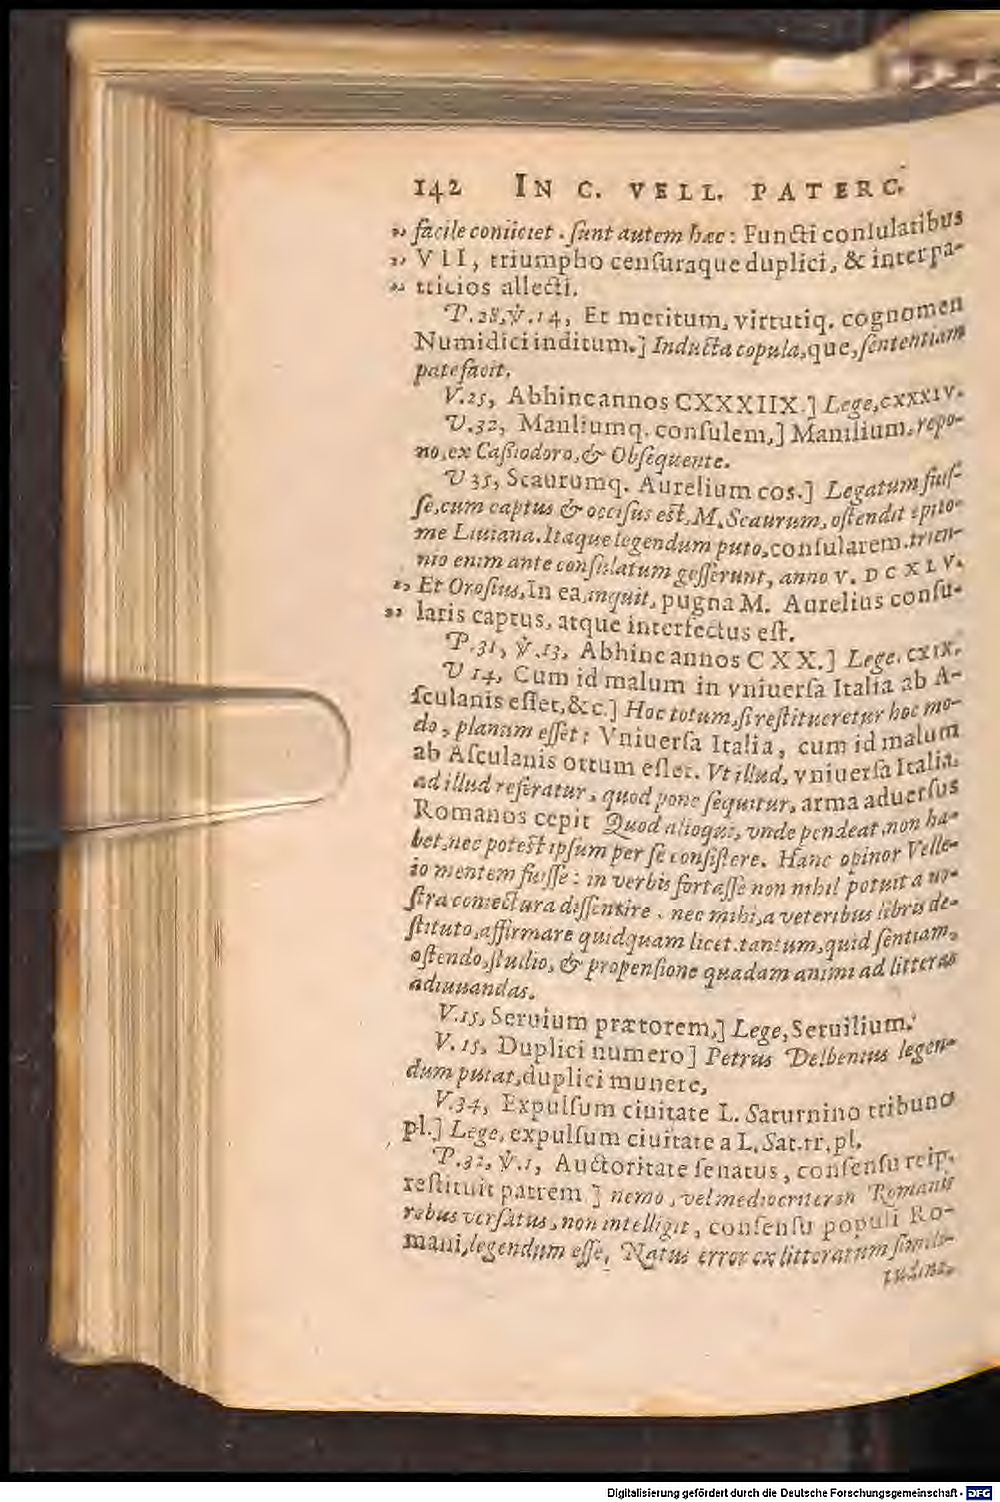 142 IN C. VELL. PATERC.
„ facile coniiciet. sunt autem hæc: Functi consulatibus
„ VII, triumpho censuraque duplici, & inter pa-
„ tricios allecti.
P.28, V̇.14, Et meritum, virtutiq. cognomen
Numidici inditum.] Inducta copula, que, sententiam
patefacit.
V.25, Abhinc annos CXXXIIX.] Lege, CXXXIV.
V.32, Manliumq. consulem,] Manilium, repo-
no, ex Cassiodoro, & Obsequente.
V 35, Scaurumq. Aurelium cos.] Legatum fuis-
se, cum captus & occisus est, M. Scaurum, ostendit epito-
me Liuiana. Itaque legendum puto, consularem. trien-
nio enim ante consulatum gesserunt, anno V. DCXLV.
„ Et Orosius, In ea, inquit, pugna M. Aurelius consu-
„ laris captus, atque interfectus est.
P.31, V̇.13, Abhinc annos CXX.] Lege, CXIX.
V 14, Cum id malum in vniuersa Italia ab A-
sculanis esset, &c.] Hoc totum, si restitueretur hoc mo-
do, planum esset: Vniuersa Italia, cum id malum
ab Asculanis ortum esset. Vt illud, vniuersa Italia,
ad illud referatur, quod pone sequitur, arma aduersus
Romanos cepit Quod alioqui, vnde pendeat, non ha-
bet, nec potest ipsum per se consistere. Hanc opinor Velle-
io mentem fuisse: in verbis fortasse non nihil potuit a no-
stra coniectura dissentire. nec mihi, a veteribus libris de-
stituto, affirmare quidquam licet. tantum, quid sentiam,
ostendo, studio, & propensione quadam animi ad litteras
adiuuandas.
V.15, Seruium prætorem,] Lege, Seruilium.
V.15, Duplici numero] Petrus Delbenius legen-
dum putat, duplici munere,
V.34, Expulsum ciuitate L. Saturnino tribuno
pl.] Lege, expulsum ciuitate a L. Sat. tr. pl.
P.32, V̇.1, Auctoritate senatus, consensu reip.
restituit patrem.] nemo, vel mediocriter in Romanis
rebus versatus, non intelligit, consensu populi Ro-
mani, legendum esse, Natus error ex litterarum simili-
tudine.
Digitalisierung gefördert durch die Deutsche Forschungsgemeinschaft - DFG